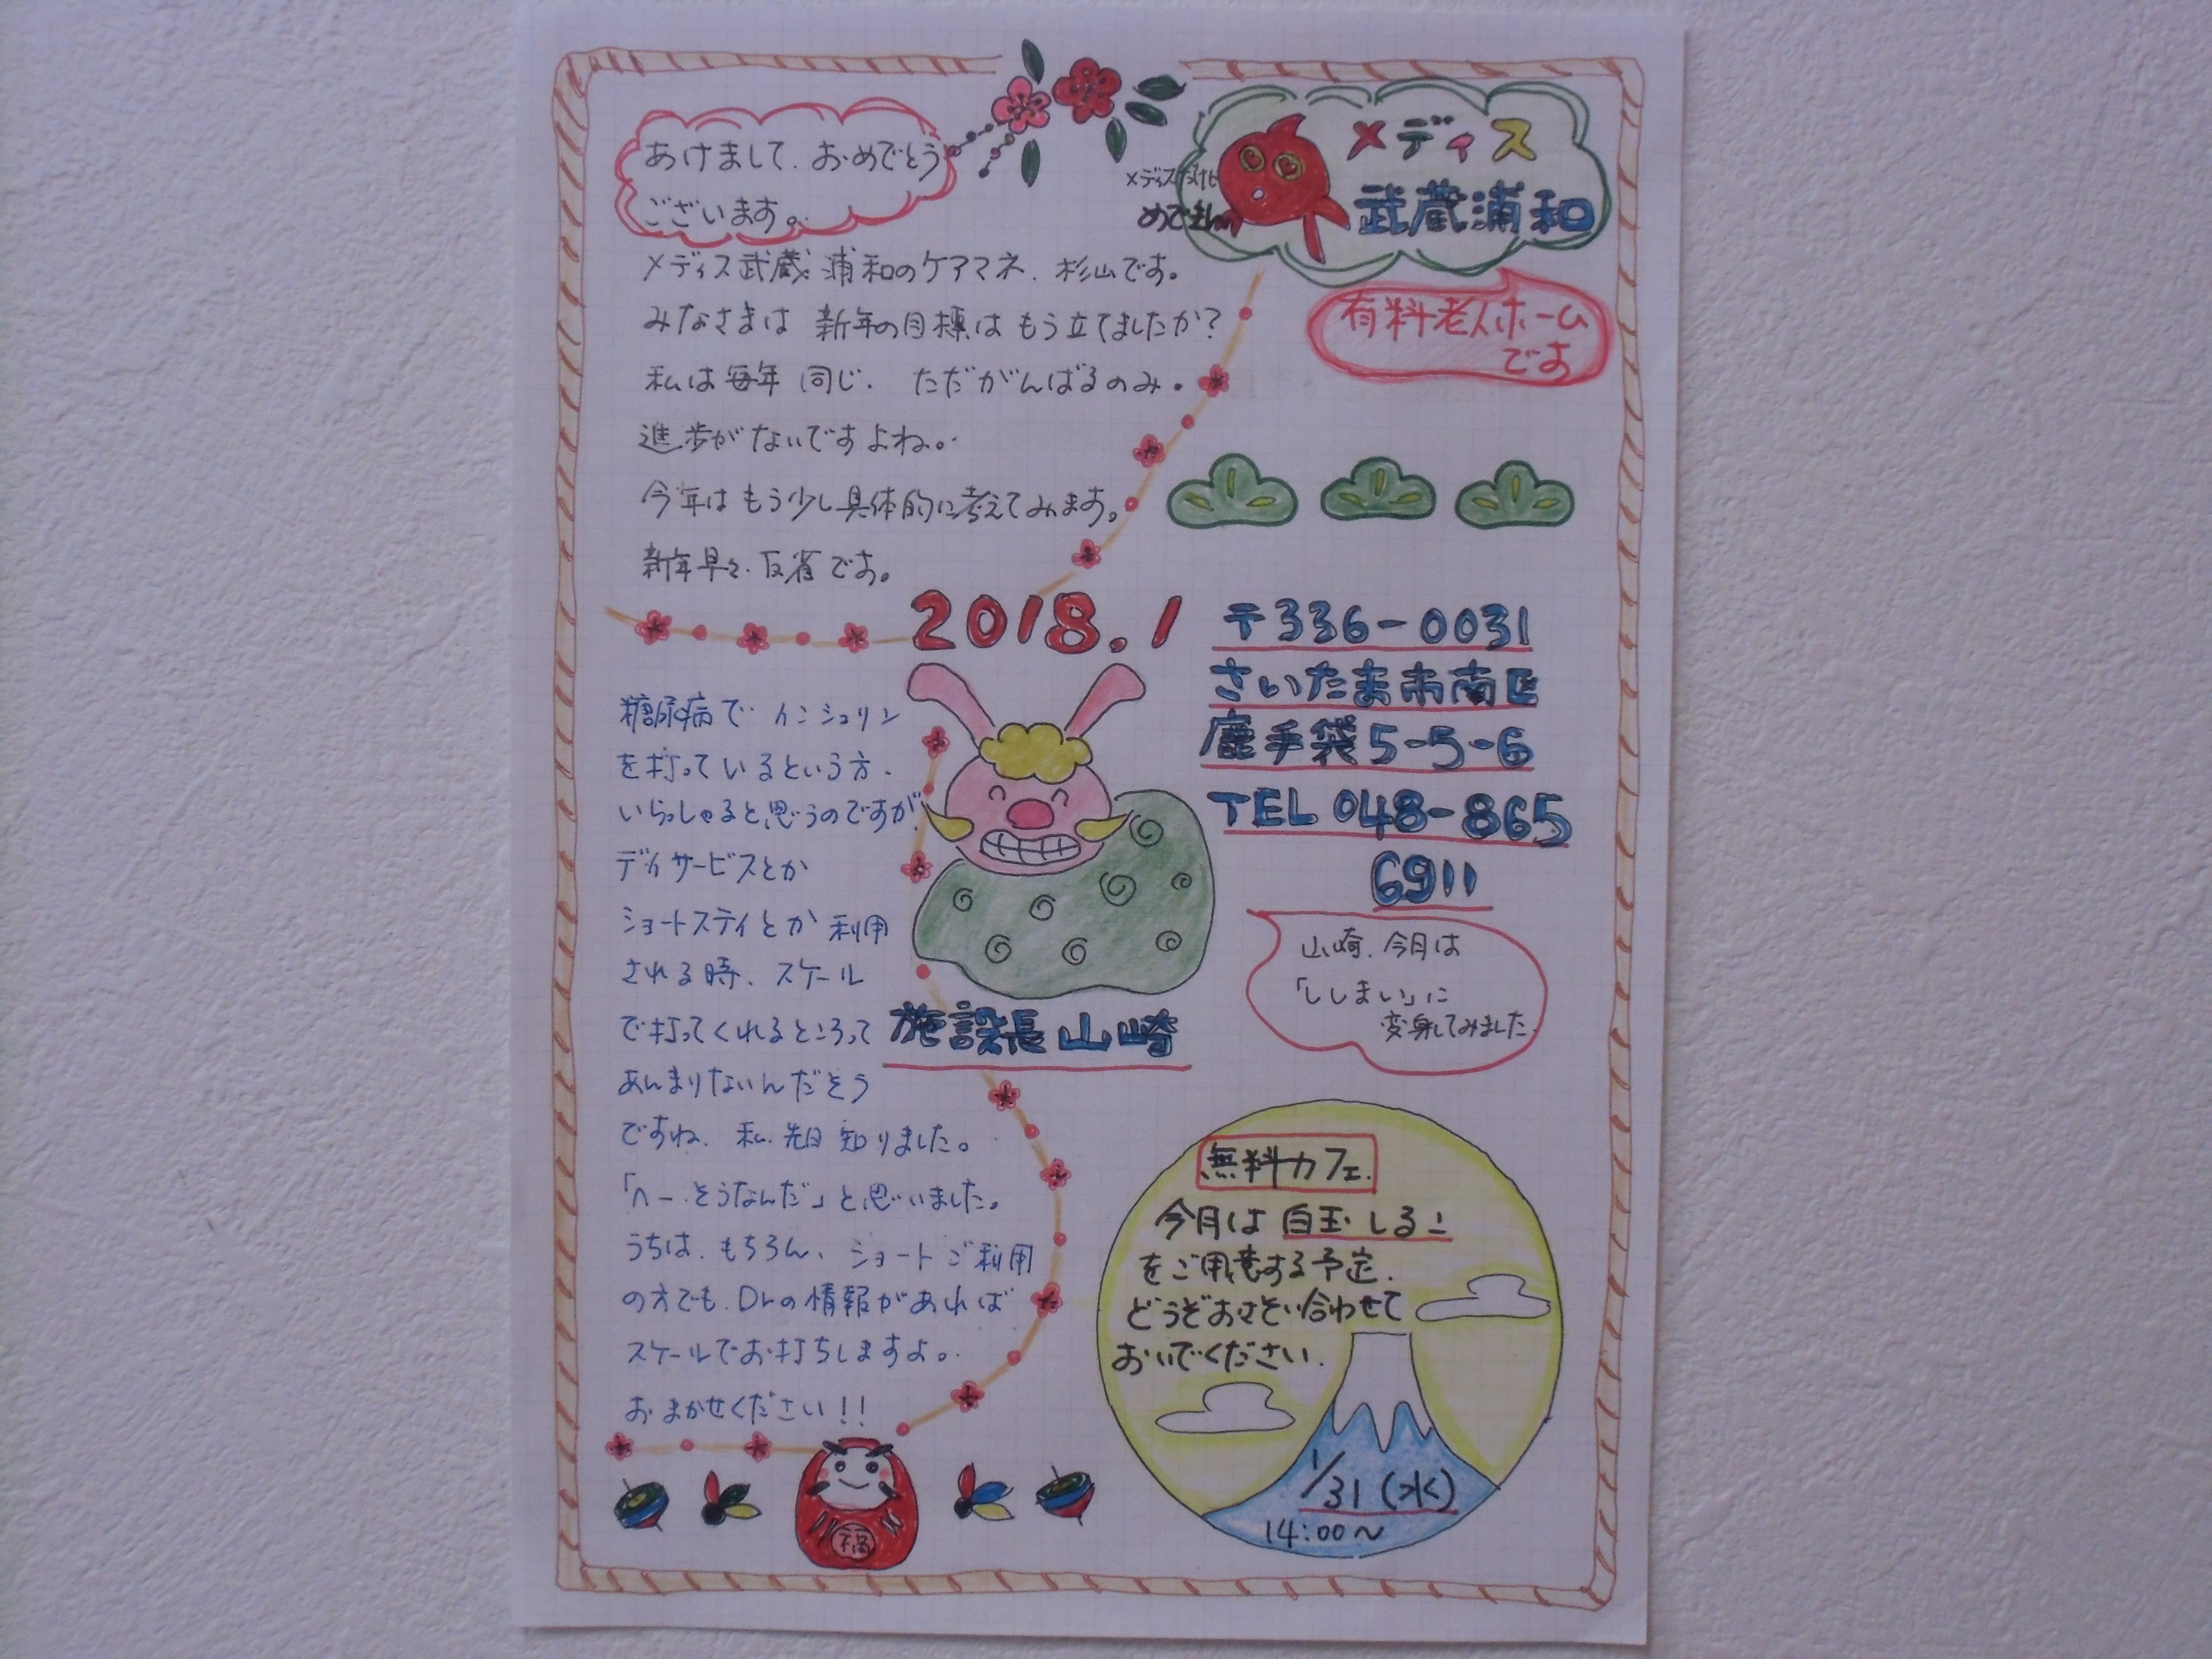 あけまして、おめでとう
ございます。
メディス
武蔵浦和
メディスだけに
有料老人ホーム
です
メディス武蔵浦和のケアマネ、杉山です。
みなさまは 新年の目標は もう立てましたか?
私は毎年 同じ. ただがんばるのみ。
進歩がないですよね。
今年はもう少し具体的に考えてみます。
新年早々、反省です。
2018.1
〒336-0031
さいたま市南区
鹿手袋5-5-6
TEL 048-865
6911
山崎、今月は
「ししまい」に
変身してみました.
施設長 山崎
糖尿病で インシュリン
を打っているという方、
いらっしゃると思うのですが、
デイサービスとか
ショートステイとか 利用
される時、スケール
で打ってくれるところって
あんまりないんだそう
ですね. 私、先日 知りました。
「へー.そうなんだ」と思いました。
うちは、もちろん、ショートご利用
の方でも、Drの情報があれば
スケールでお打ちしますよ。
おまかせください!!
福
無料カフェ.
今月は 白玉しるこ
をご用意する予定.
どうぞおさそい合わせて
おいでください.
1/31 (水)
14:00〜